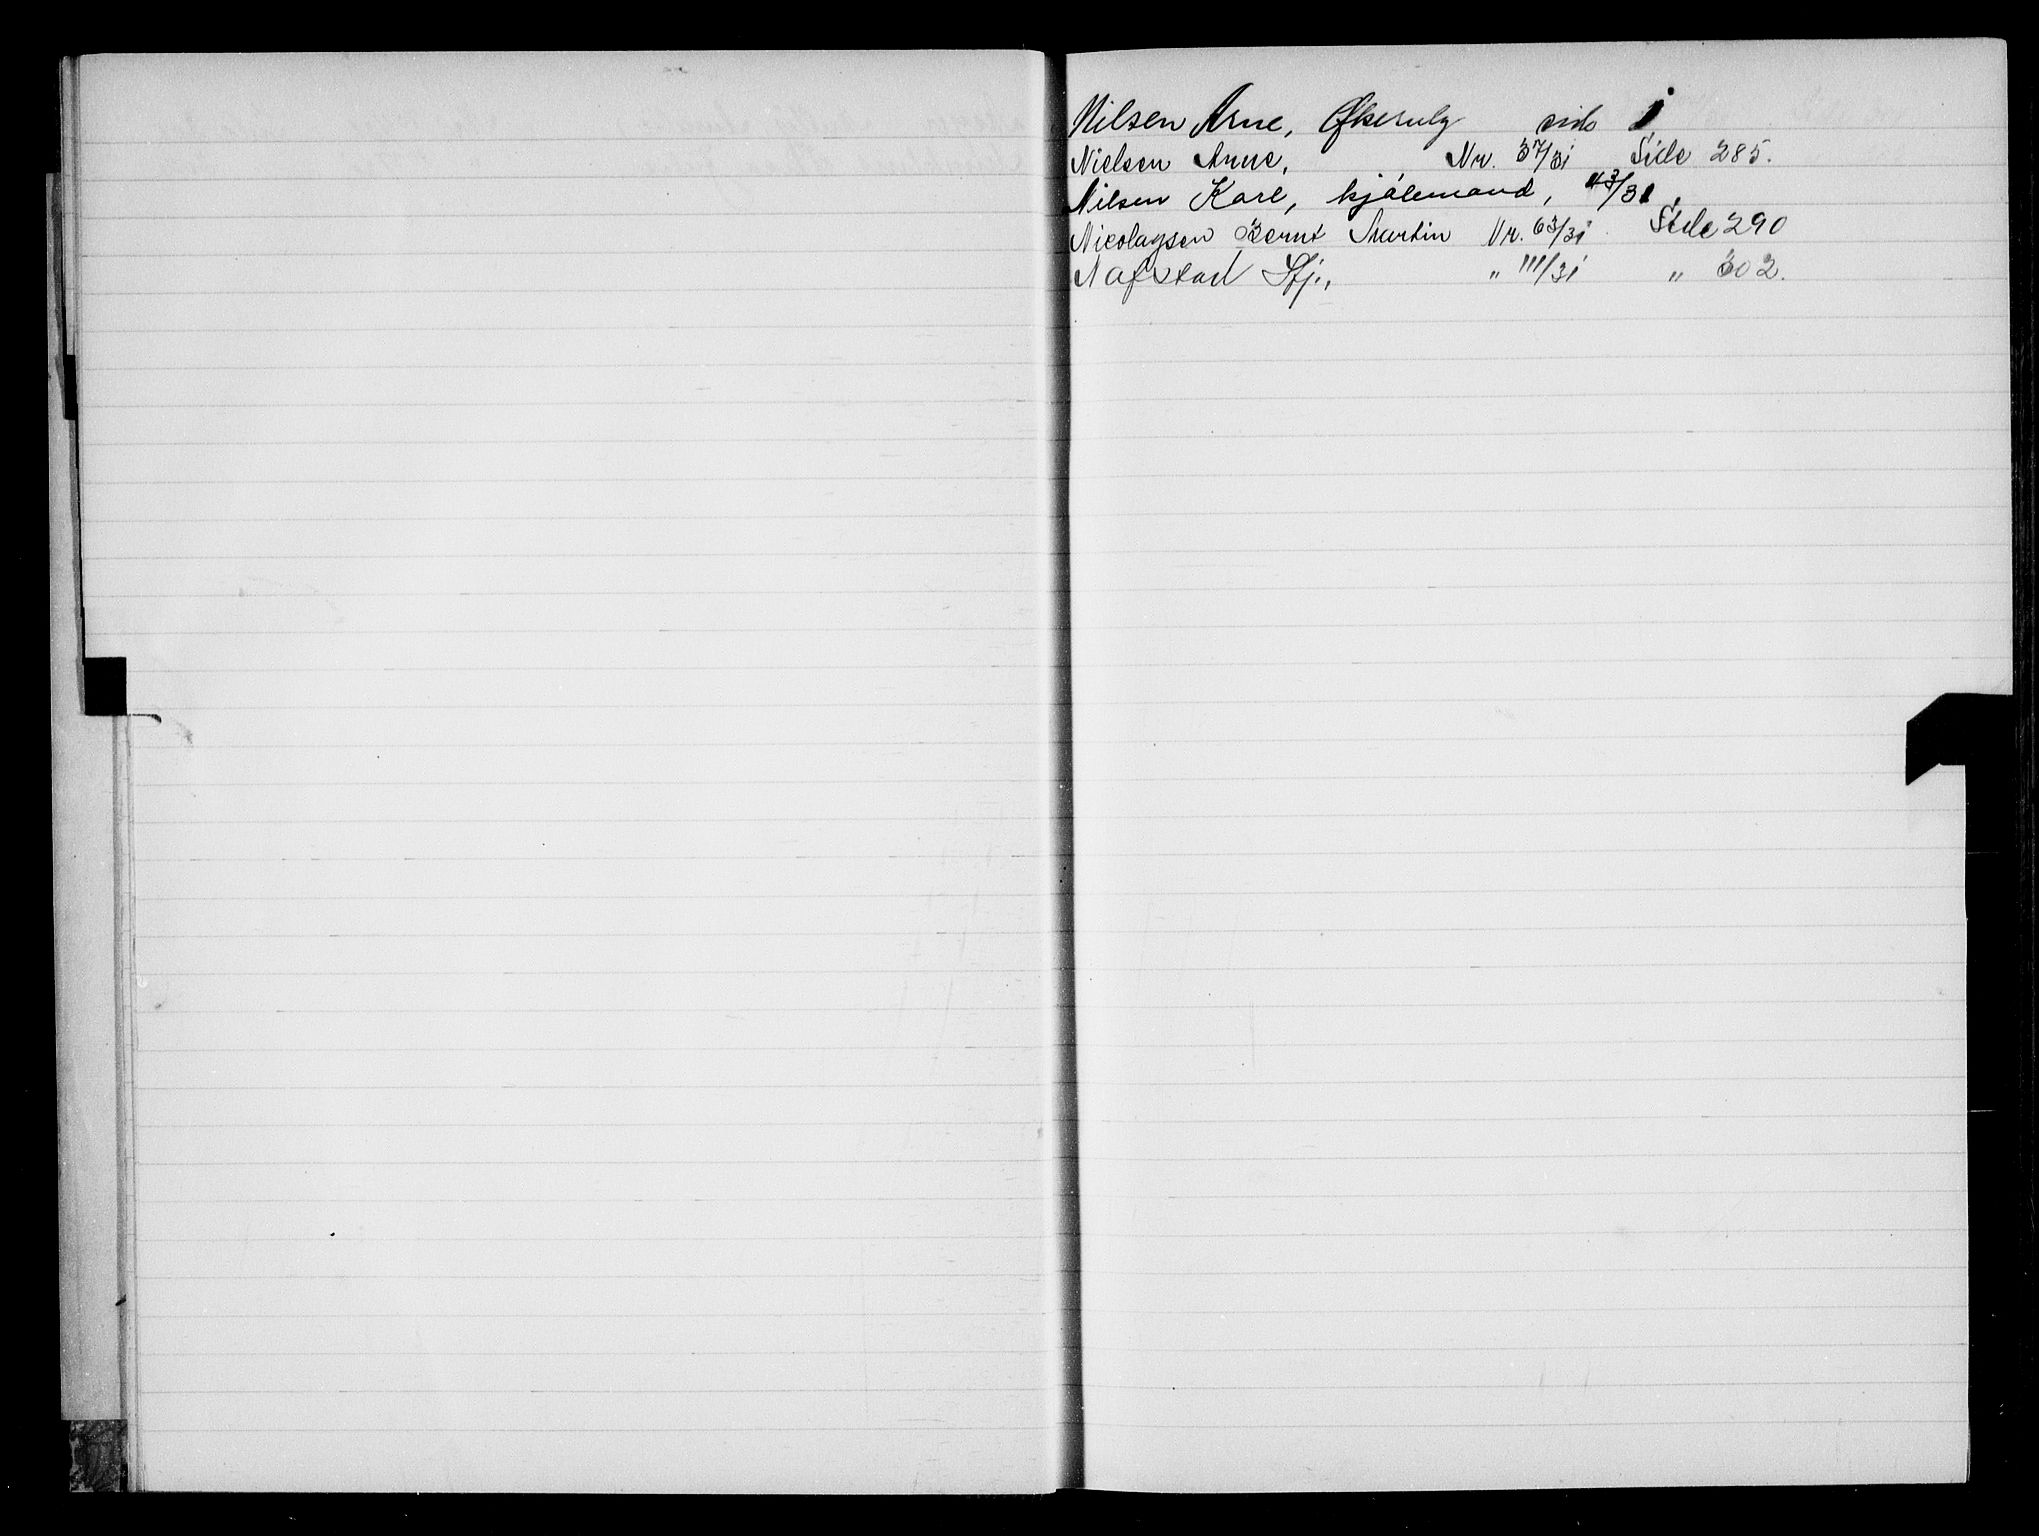 Nilsen Arne, side 1
Nielsen Arne, Nr. 37/31 Side 285.
Nilsen Karl, hjålemand, 43/31
Nicolaysen Bernt Martin Nr. 63/31 Side 290
Nafstad Hj., " 111/31 " 302.